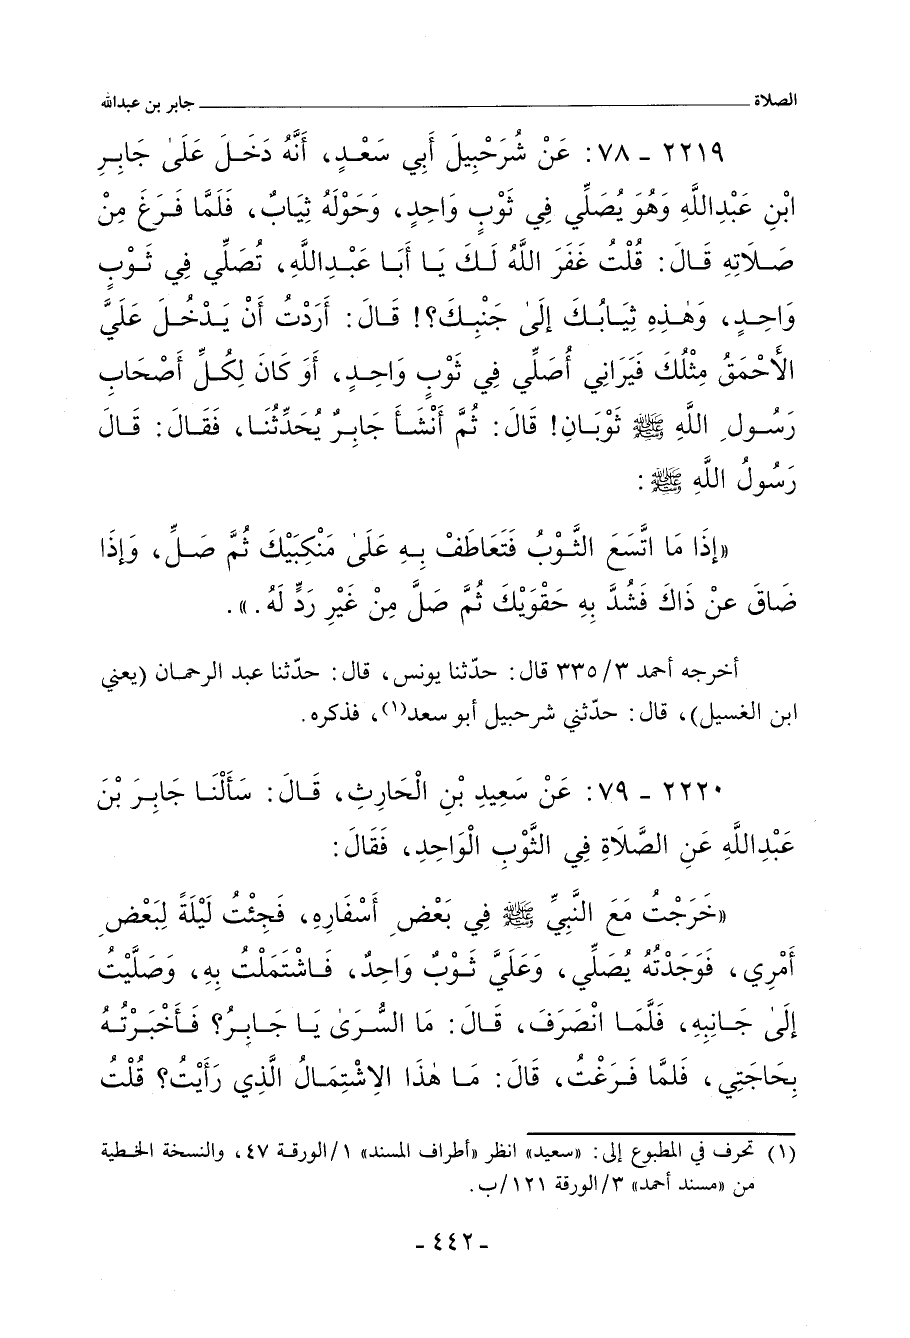 الصلاة ـــــــ جابر بن عبدالله
٢٢١٩ - ٧٨: عَنْ شُرَحْبِيلَ أَبِي سَعْدٍ، أَنَّهُ دَخَلَ عَلَىٰ جَابِرِ
ابْنِ عَبْدِاللَّهِ وَهُوَ يُصَلِّي فِي ثَوْبٍ وَاحِدٍ، وَحَوْلَهُ ثِيَابٌ، فَلَمَّا فَرَغَ مِنْ
صَلَاتِهِ قَالَ: قُلْتُ غَفَرَ اللَّهُ لَكَ يَا أَبَا عَبْدِاللَّهِ، تُصَلِّي فِي ثَوْبٍ
وَاحِدٍ، وَهٰذِهِ ثِيَابُكَ إِلَىٰ جَنْبِكَ؟! قَالَ: أَرَدْتُ أَنْ يَدْخُلَ عَلَيَّ
الْأَحْمَقُ مِثْلُكَ فَيَرَانِي أُصَلِّي فِي ثَوْبٍ وَاحِدٍ، أَوَ كَانَ لِكُلِّ أَصْحَابِ
رَسُولِ اللَّهِ ﷺ ثَوْبَانِ! قَالَ: ثُمَّ أَنْشَأَ جَابِرٌ يُحَدِّثُنَا، فَقَالَ: قَالَ
رَسُولُ اللَّهِ ﷺ:
«إِذَا مَا اتَّسَعَ الثَّوْبُ فَتَعَاطَفْ بِهِ عَلَىٰ مَنْكِبَيْكَ ثُمَّ صَلِّ، وَإِذَا
ضَاقَ عَنْ ذَاكَ فَشُدَّ بِهِ حَقْوَيْكَ ثُمَّ صَلِّ مِنْ غَيْرِ رَدٍّ لَهُ.».
أخرجه أحمد ٣/ ٣٣٥ قال: حدّثنا يونس، قال: حدّثنا عبد الرحمان (يعني
ابن الغسيل)، قال: حدّثني شرحبيل أبو سعد(١)، فذكره.
٢٢٢٠ - ٧٩: عَنْ سَعِيدِ بْنِ الْحَارِثِ، قَالَ: سَأَلْنَا جَابِرَ بْنَ
عَبْدِاللَّهِ عَنِ الصَّلَاةِ فِي الثَّوْبِ الْوَاحِدِ، فَقَالَ:
«خَرَجْتُ مَعَ النَّبِيِّ ﷺ فِي بَعْضِ أَسْفَارِهِ، فَجِئْتُ لَيْلَةً لِبَعْضِ
أَمْرِي، فَوَجَدْتُهُ يُصَلِّي، وَعَلَيَّ ثَوْبٌ وَاحِدٌ، فَاشْتَمَلْتُ بِهِ، وَصَلَّيْتُ
إِلَىٰ جَانِبِهِ، فَلَمَّا انْصَرَفَ، قَالَ: مَا السُّرَىٰ يَا جَابِرُ؟ فَأَخْبَرْتُهُ
بِحَاجَتِي، فَلَمَّا فَرَغْتُ، قَالَ: مَا هٰذَا الِاشْتِمَالُ الَّذِي رَأَيْتُ؟ قُلْتُ
(١) تحرف في المطبوع إلى: «سعيد» انظر «أطراف المسند» ١/الورقة ٤٧، والنسخة الخطية
من «مسند أحمد» ٣/الورقة ١٢١/ب.
- ٤٤٢ -